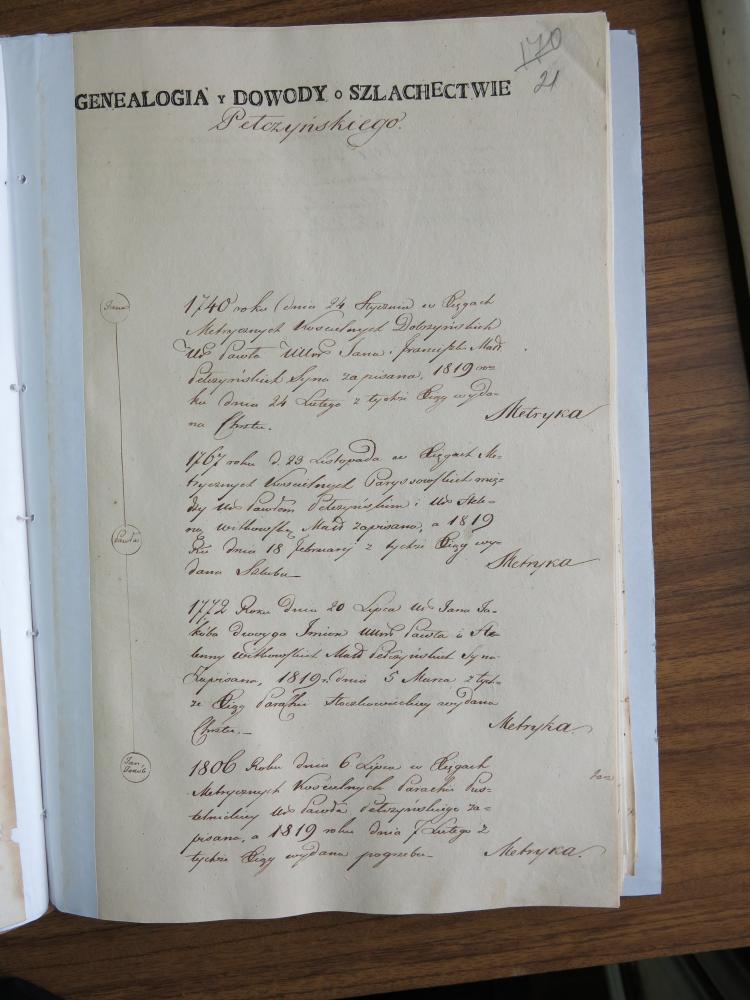 170
21
GENEALOGIA Y DOWODY O SZLACHECTWIE
Petczyńskiego.
Jana
1740 roku dnia 24 Stycznia w Xięgach
Metrycznych Kościelnych Dobrzyńskich
Ur. Pawła Jana i Franciszki Mał.
Petczyńskich Syna zapisana, 1819 ro=
ku dnia 24 Lutego z tychże Xiąg wyda=
na Chrztu.
Metryka
1767 roku d. 23 Listopada w Xięgach Me=
trycznych Kościelnych Paryssowskich mię=
dzy Ur. Pawłem Petczyńskim i Ur. Hele=
ną Witkowską Mał zapisana, a 1819
Rku dnia 18 February z tychże Xiąg wy=
dana Szlubu
Metryka
Pawła
1772 Roku dnia 20 Lipca Ur. Jana Ja=
kóba dwoyga Imion Pawła i He=
lenny Witkowskich Mał Petczyńskich Syna
Zapisana, 1819 r. dnia 5 Marca z tych=
że Xiąg Parafii wydana
Chrztu.
Metryka
Jan,
1806 Roku dnia 6 Lipca w Xięgach
Metrycznych Kościelnych Parafii Pus=
telnickiey Ur. Pawła Petczyńskiego za=
pisana, a 1819 roku dnia 7 Lutego z
tychże Xiąg wydana pogrzebu
Metryka.